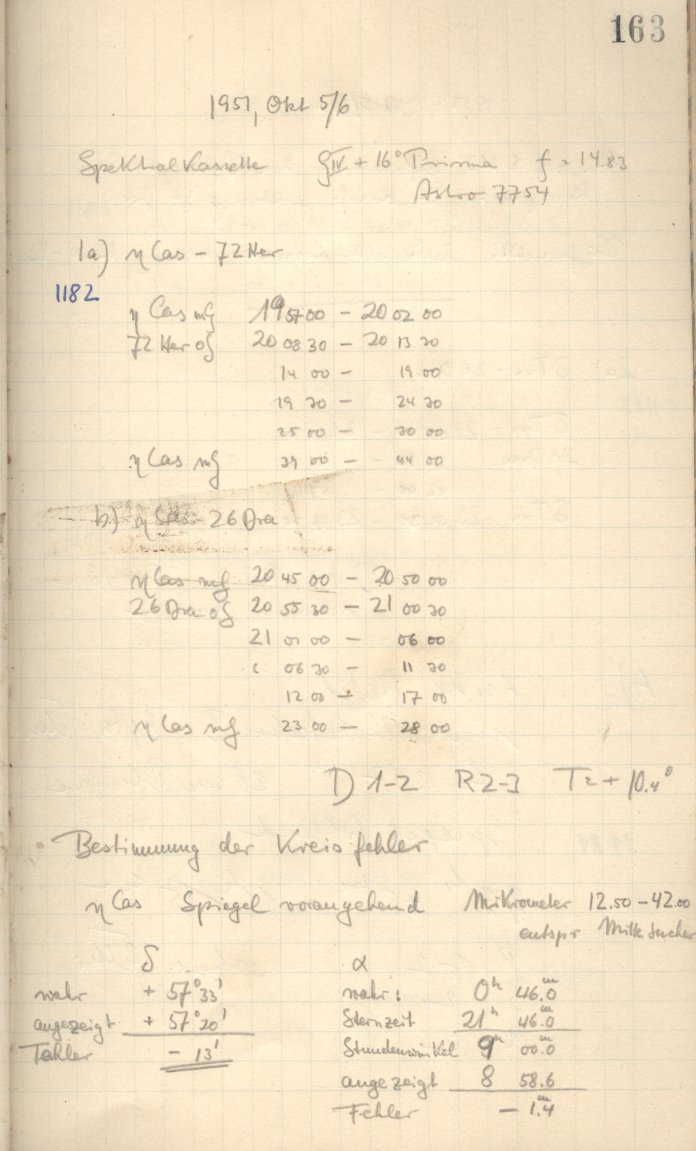 163
1951, Okt 5/6
Spektralkassette ζIV + 16° Prisma f = 14.83
Astro 7754
1a) η Cas - 72 Her
1182
η Cas mf 19 57 00 - 20 02 00
72 Her of 20 08 30 - 20 13 30
14 00 - 19 00
19 30 - 24 30
25 00 - 30 00
η Cas mf 39 00 - 44 00
b) η Cas - 26 Dra
η Cas mf 20 45 00 - 20 50 00
26 Dra of 20 55 30 - 21 00 30
21 01 00 - 06 00
06 30 - 11 30
12 00 - 17 00
η Cas mf 23 00 - 28 00
D 1-2 R 2-3 T = + 10.4°
Bestimmung der Kreisfehler
η Cas Spiegel vorangehend Mikrometer 12.50 - 42.00
entspr Mitte Sucher
δ α
wahr + 57° 33' wahr: 0h 46.0m
angezeigt + 57° 20' Sternzeit 21h 46.0m
Fehler - 13' Stundenwinkel 9h 00.0
angezeigt 8 58.6
Fehler - 1.4m